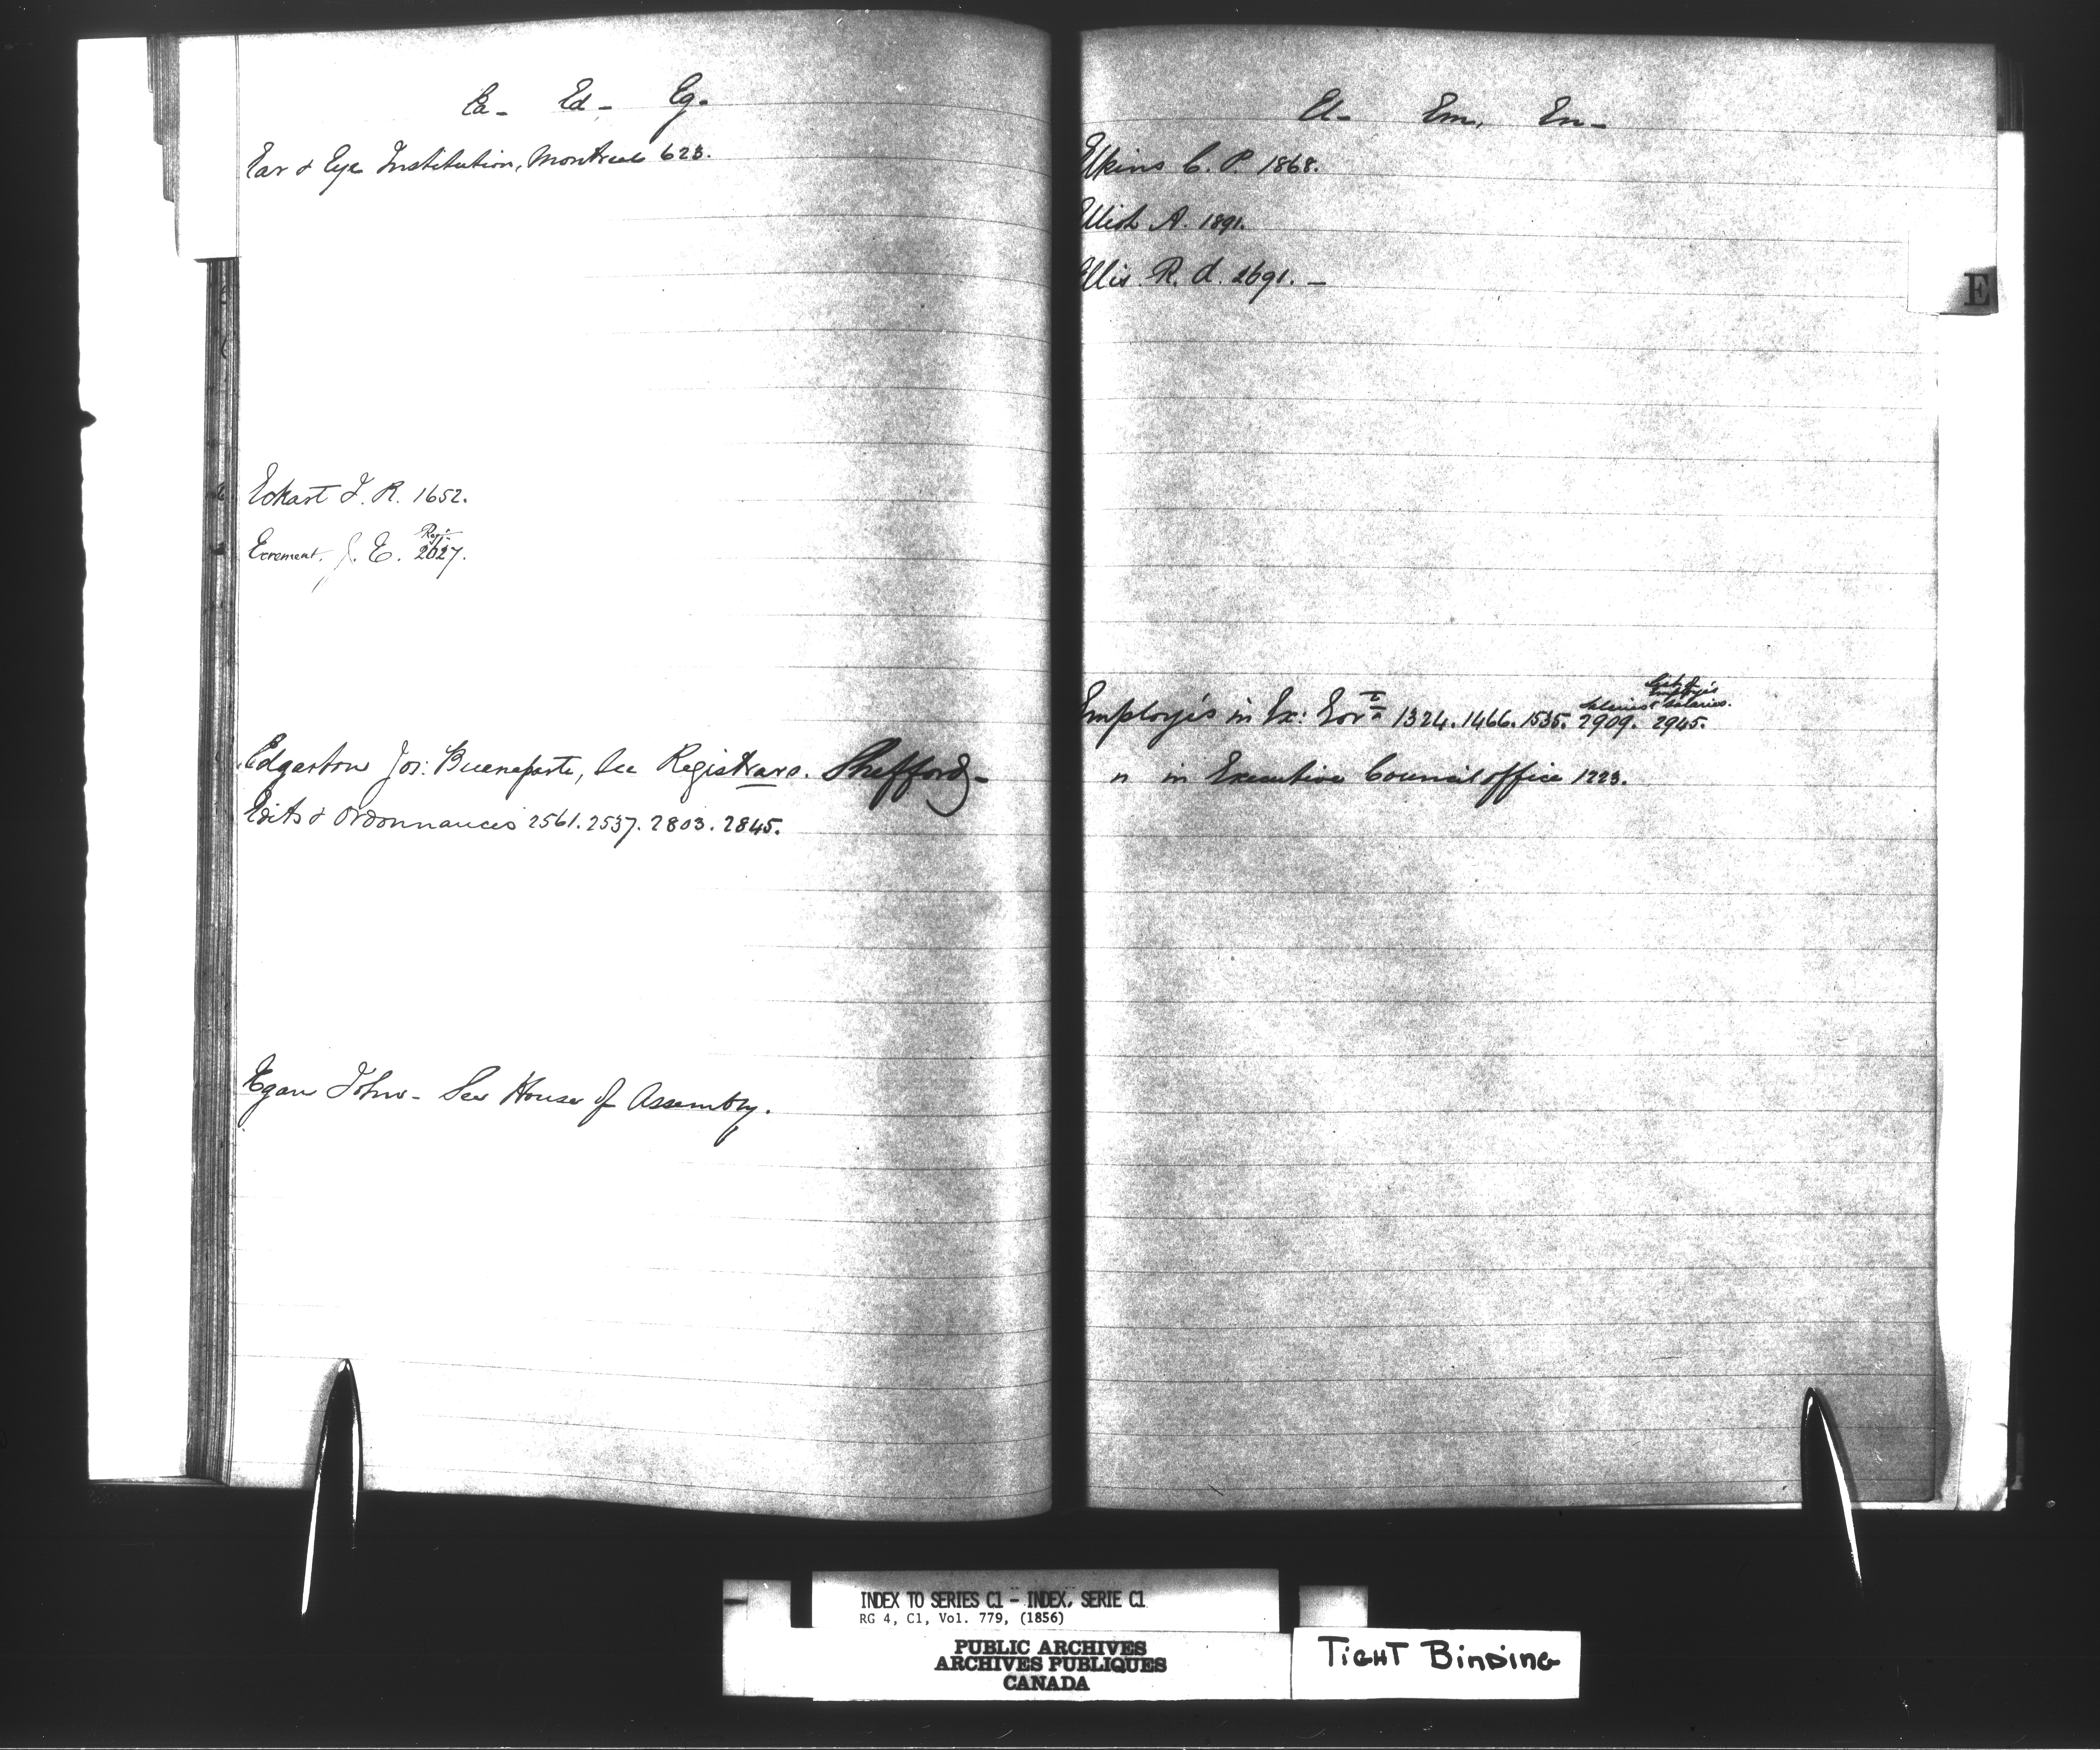 Ea- Ed- Eg-
Ear & Eye Institution, Montreal 623.
Eckart T. R. 1652.
Ecrement. J. E. 2627.
Edgarton Jos: Buenaparte, See Registrars. Shefford-
Edits & Ordonnances 2561. 2537. 2803. 2845.
Egan John- See House of Assembly.
El- Em, En-
Elkins C. P. 1868.
A. 1891.
Ellis R. d. 2691. -
Employés in Ex: Govt 1324. 1466. 1535. 2909. 2945.
" in Executive Council office 1223.
E
INDEX TO SERIES C1 - INDEX, SERIE C1
RG 4, C1, Vol. 779, (1856)
PUBLIC ARCHIVES
ARCHIVES PUBLIQUES
CANADA
TIGHT BINDING